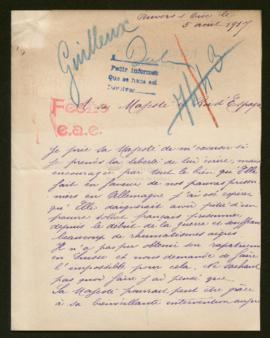 5 août 1917
Guilleux
Pedir informes
Que se haga asi
A Sa Majesté le Roi d'Espagne
Fecho
e.a.e.
Je prie Sa Majesté de m'excuser si
je prends la liberté de lui écrire, mais
encouragée par tout le bien que Elle
fait en faveur de nos pauvres prison-
niers en Allemagne j'ai osé espérer
qu'Elle daignerait avoir pitié d'un
pauvre soldat français prisonnier
depuis le début de la guerre et souffrant
beaucoup de rhumatismes aigus
Il n'a pas pu obtenir son rapatriement
en Suisse et nous demande de faire
l'impossible pour cela. Ne sachant
pas quoi faire j'ai pensé que
Sa Majesté pourrait peut être grâce
à sa bienveillante intervention auprès